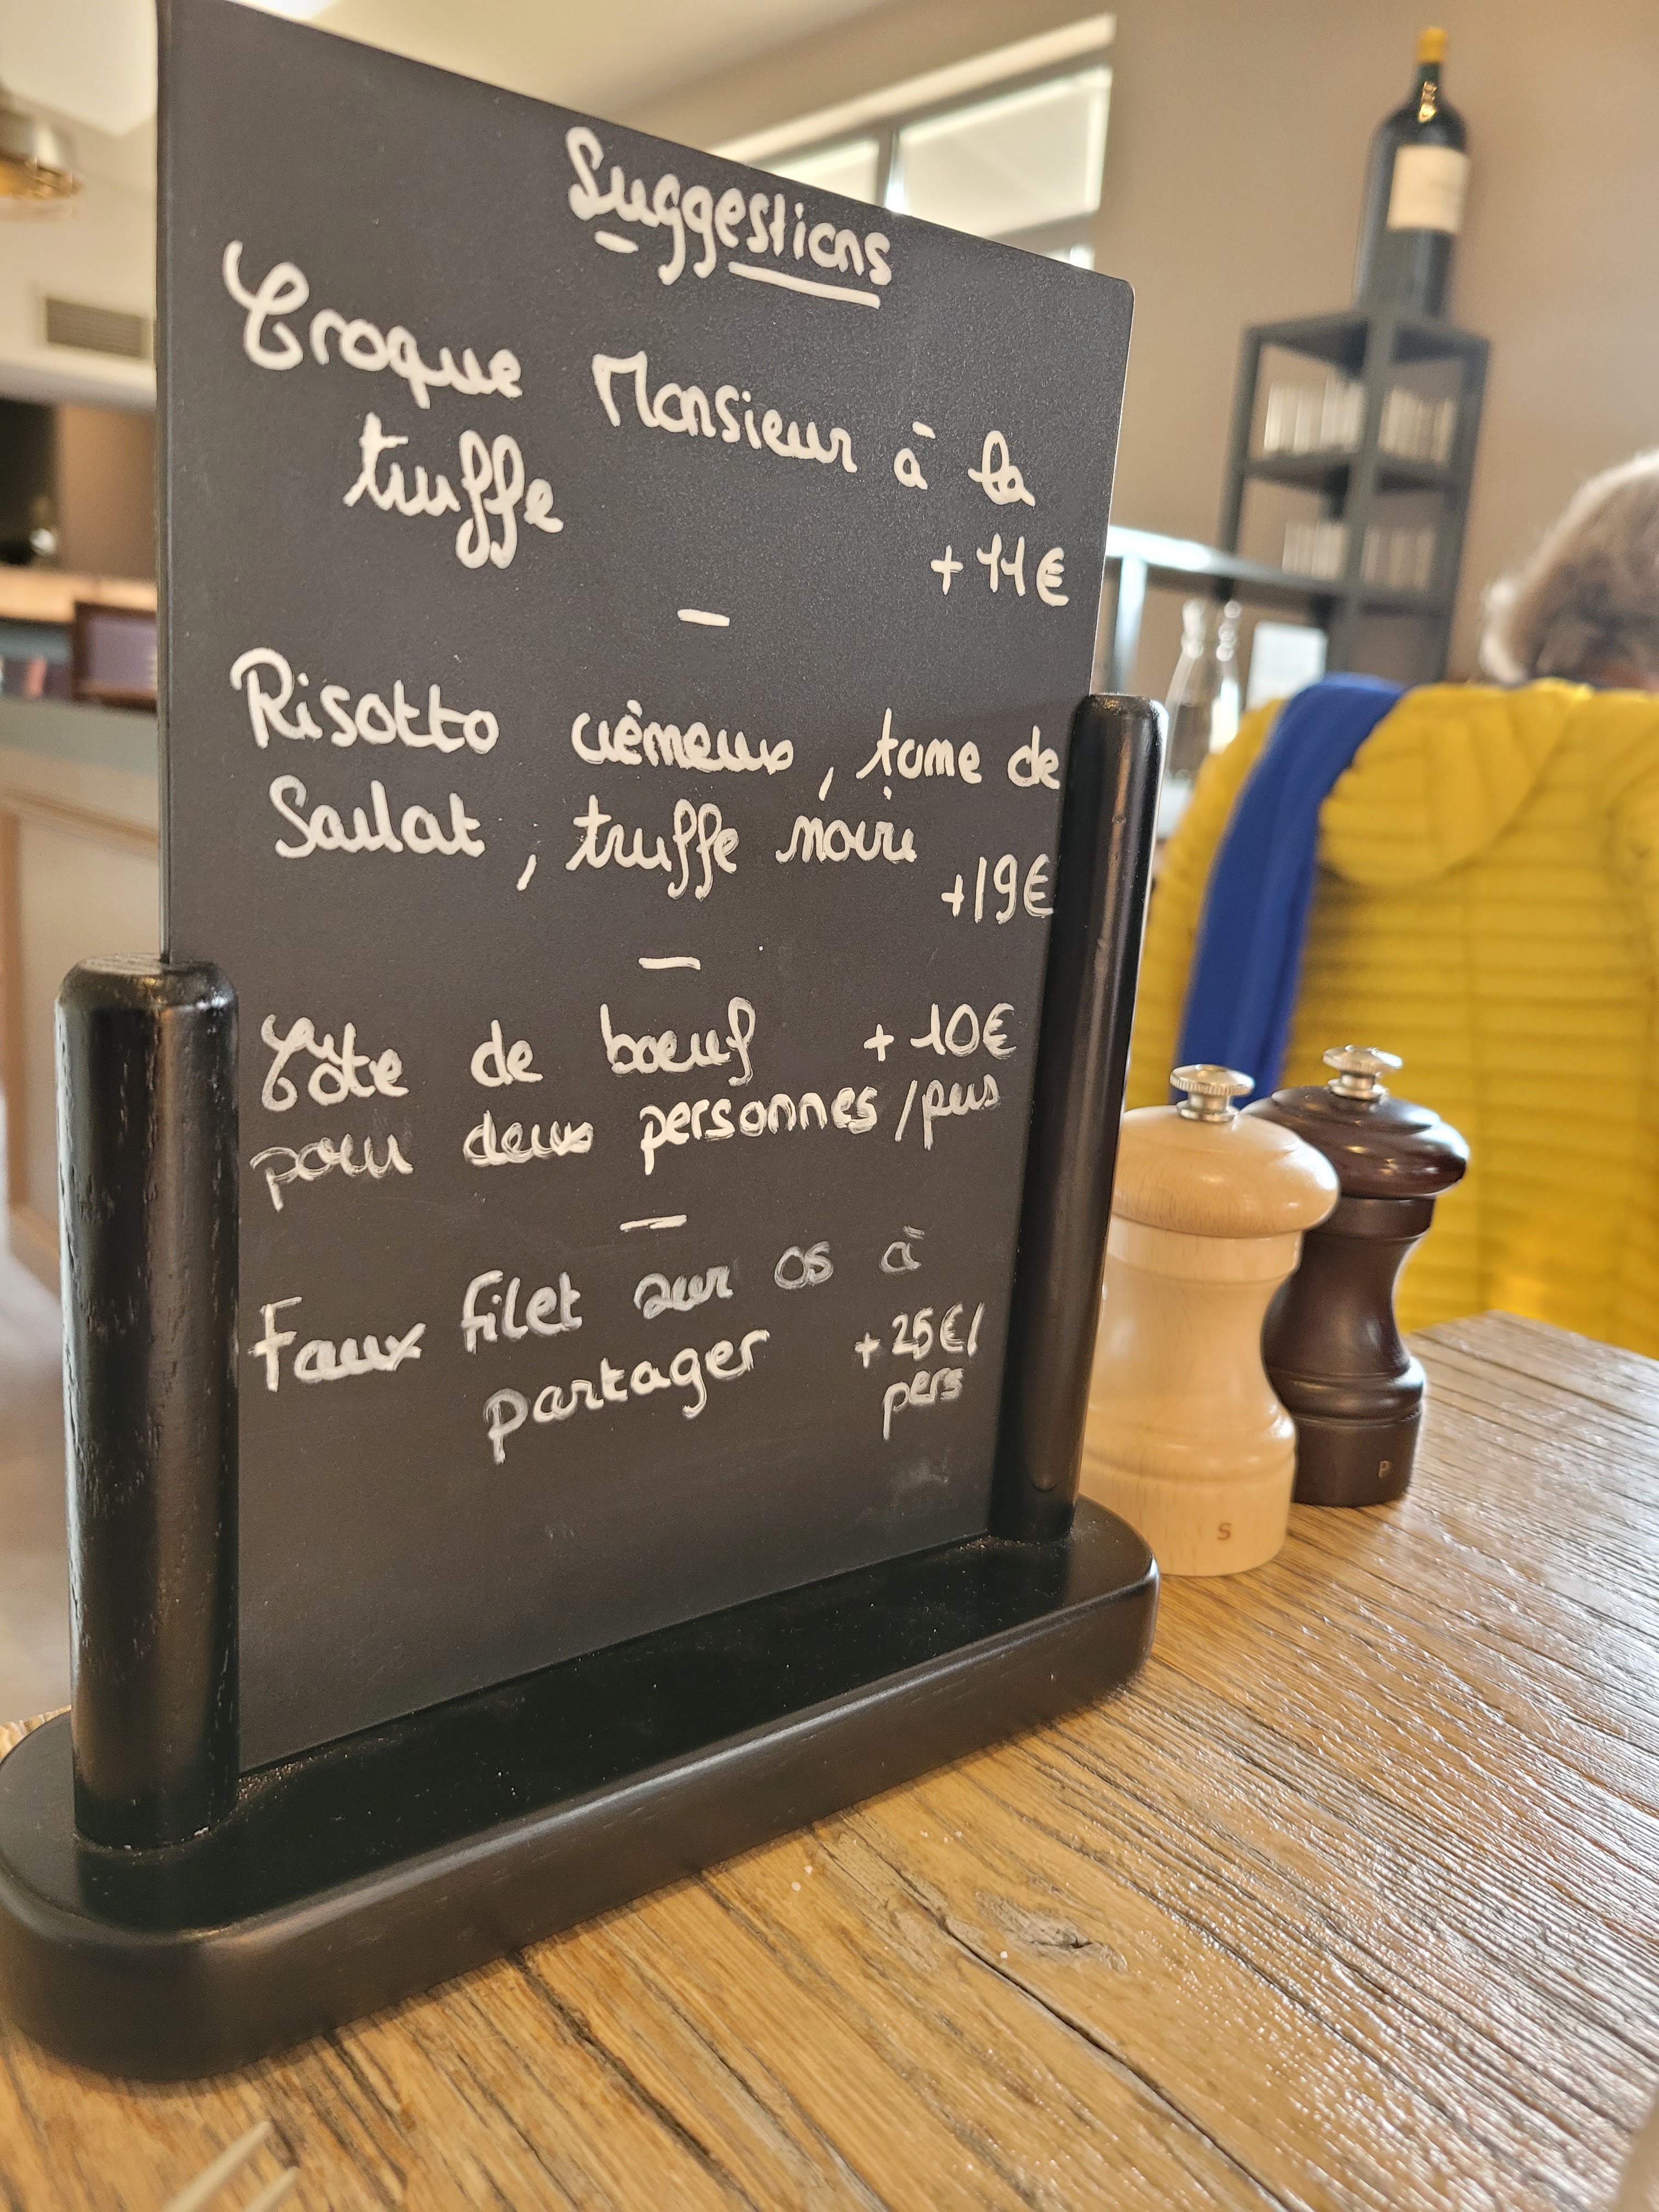 Suggestions
Croque Monsieur à la
truffe
+11€
Risotto crèmeux, tome de
Saulat, truffe noire
+19€
Côte de boeuf +10€
pour deux personnes /pers
Faux filet sur os à
partager +25€/
pers
S
P